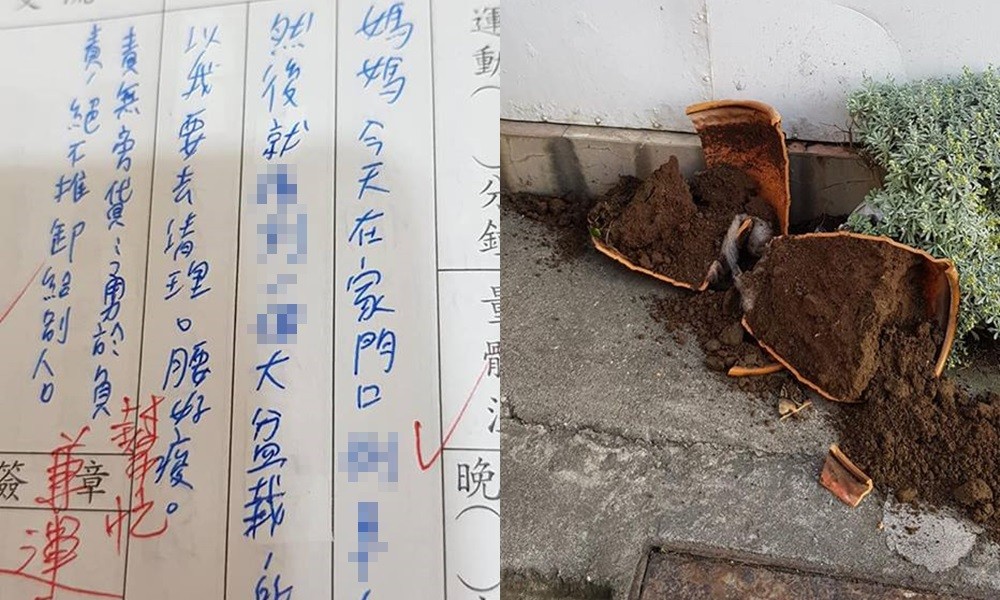 運動（　）分鐘
量體
晚（
媽媽今天在家門口
然後就大盆栽，所
以我要去清理。腰好痠。
責無旁貸：勇於負
責，絕不推卸給別人。
簽章
幫忙
兼運